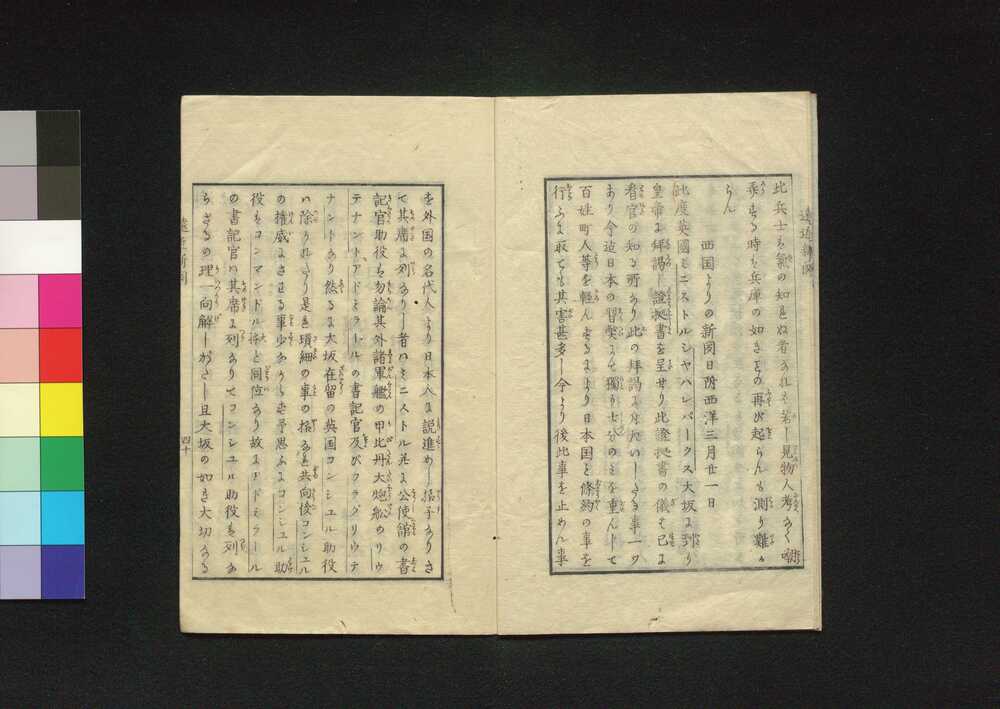 此兵士も氣の知らぬ者なれは若し見物人考なく
乗する時も兵庫の如きとの再び起らんも測り難か
らん
西国よりの新聞日附西洋三月廿一日
此度英國ミニストルシヤハレパークス大坂に到り
皇帝に拜謁し證據書を呈せり此證據書の儀も已に
看官の知る所あり此の拜謁に
あり今迠日本の習風にて獨り士分のミを重んして
百姓町人等を軽んするより日本国と條約の事を
行ふに取ても其害甚多し今より後此事を止めん事
遠近新聞
を外国の名代人より日本人に説進めし様子なりさ
て其席に列なりし者ハミニストル并に公使舘の書
記官助役も勿論其外諸軍艦の甲比丹大炮舩のリウ
テナントアドミラールの書記官及びフラグリウテ
ナントあり然るに大坂在留の英国コンシユル助役
ハ除かれたり是も瑣細の事の様なれ共向後コンシユル
の権威にさする事少なからす予思ふにコンシユル助
役もコンマンドル将と同位なり故にアドミラール
の書記官ハ其席に列なりてコンシユル助役も列な
らさるの理一向解しかたし且大坂の如き大切なる
遠近新聞
四十